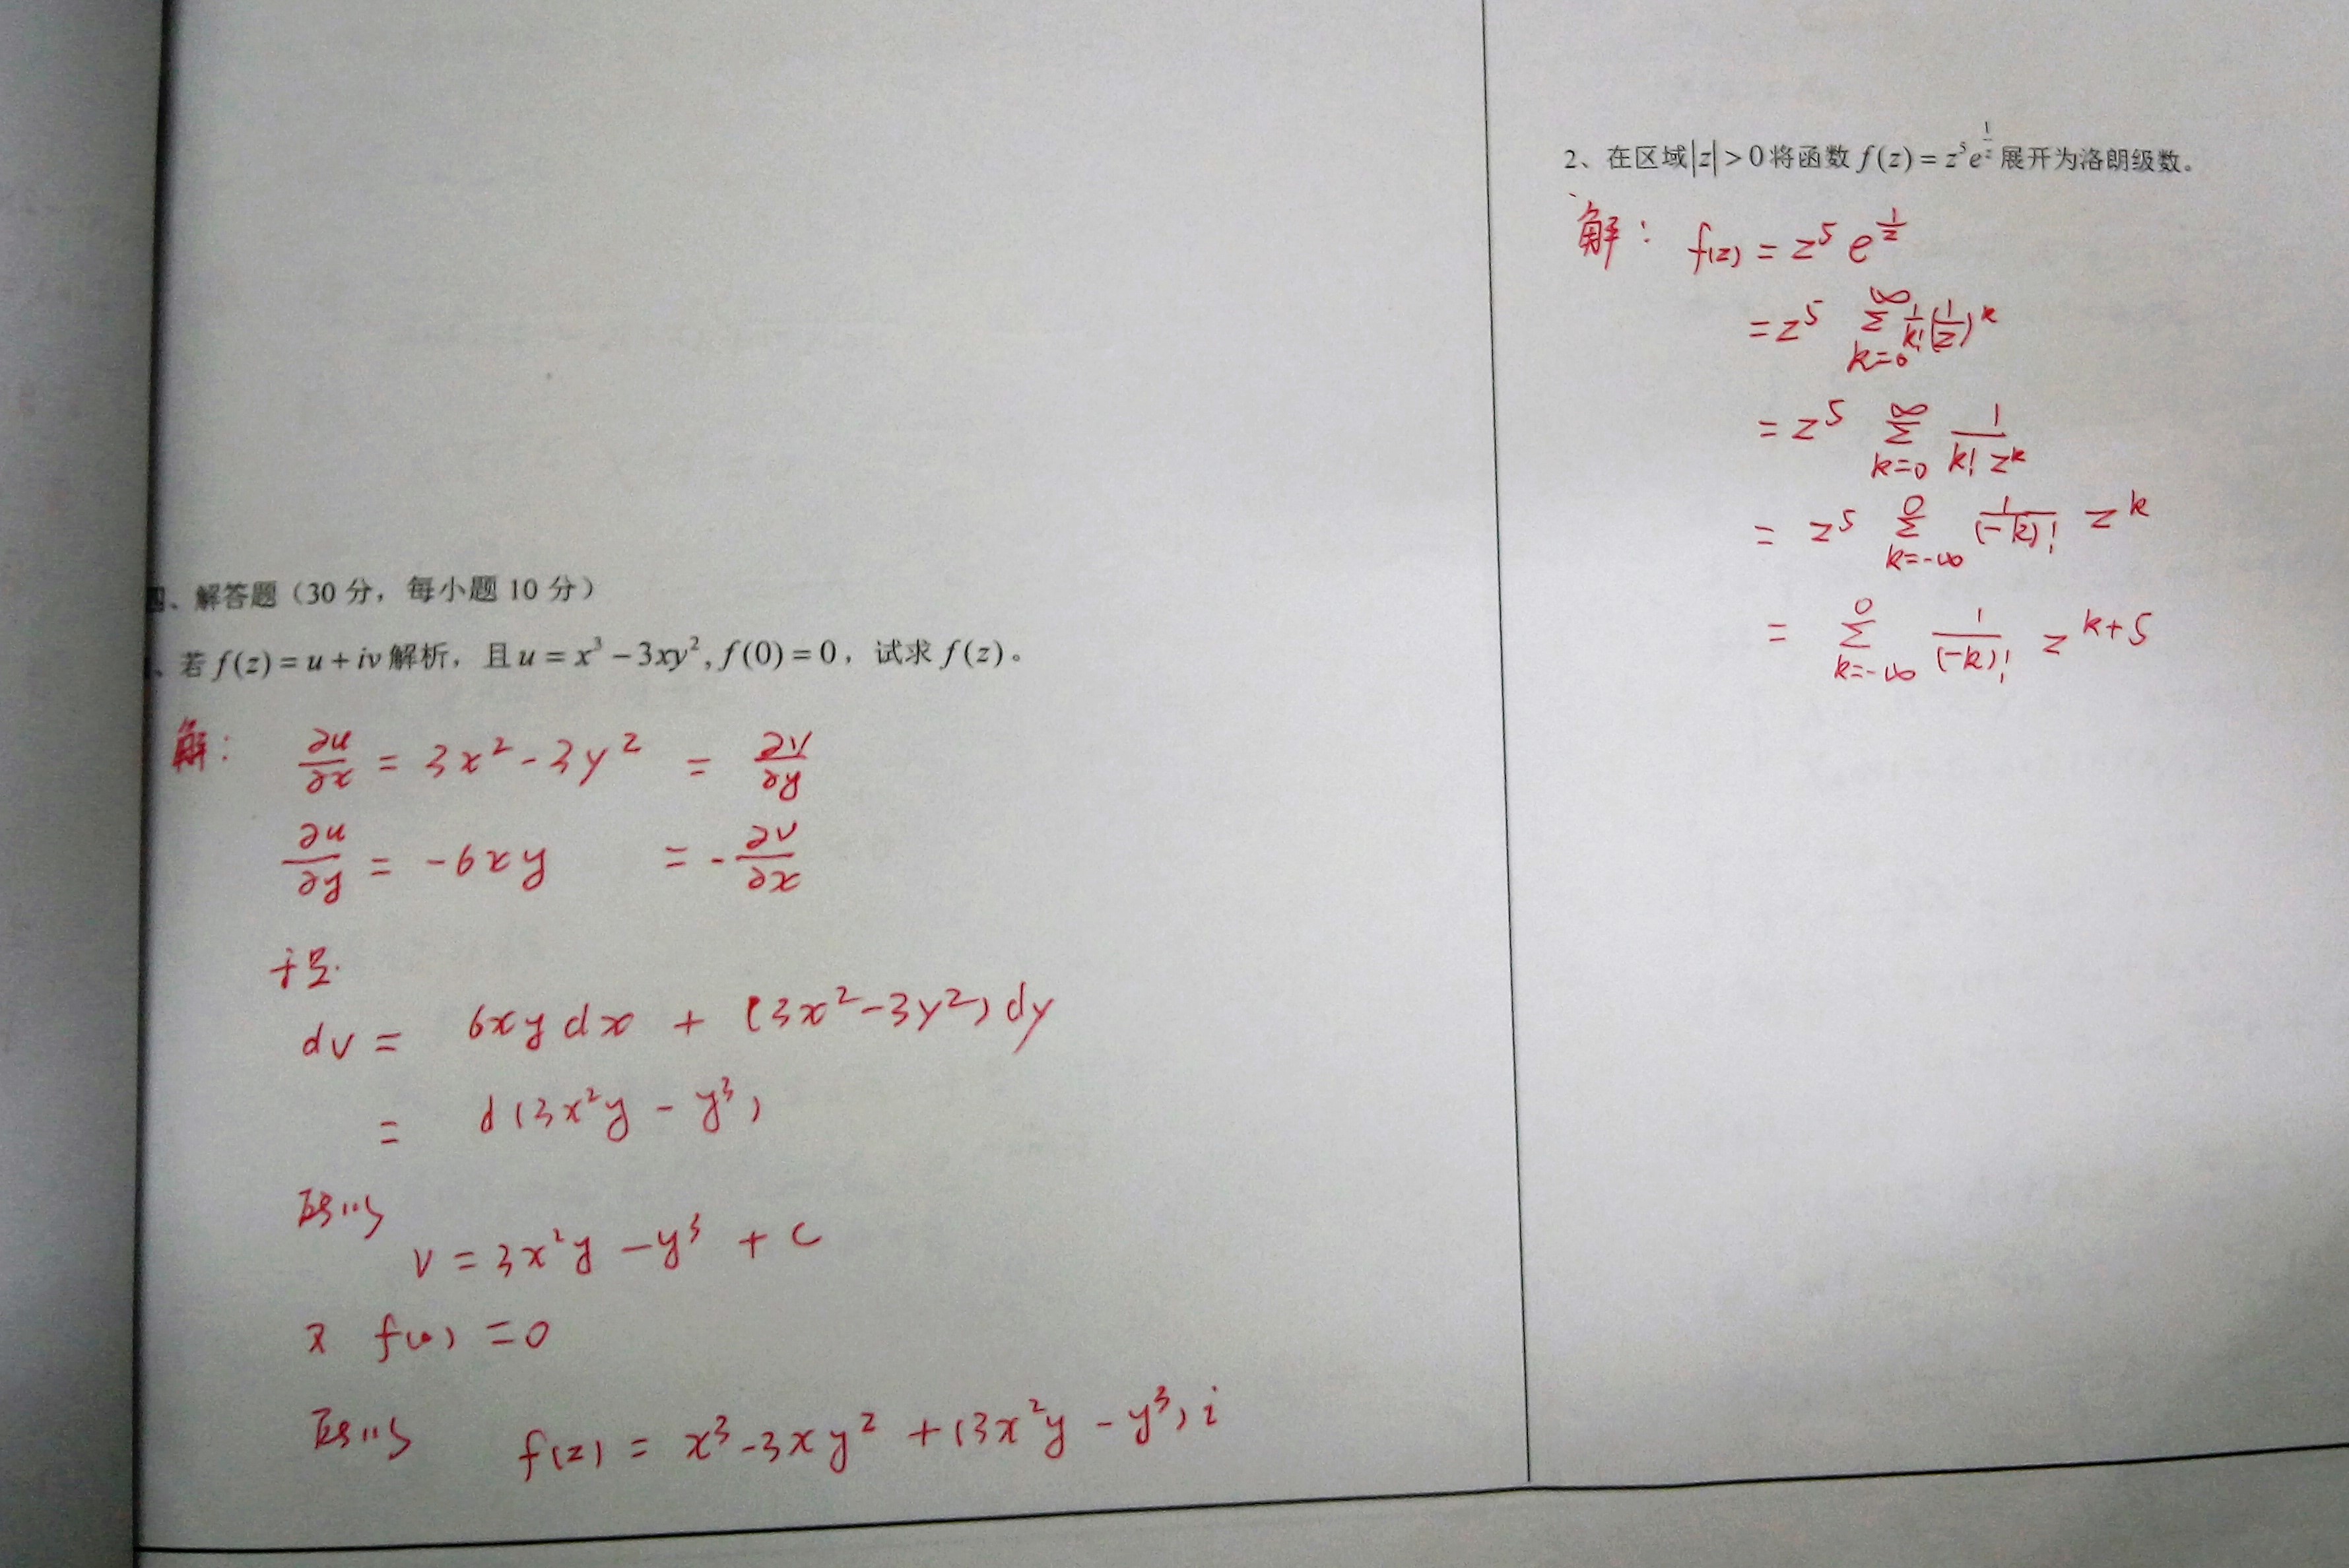 、解答题（30 分，每小题 10 分）
、若 f(z) = u + iv 解析，且 u = x³ − 3xy², f(0) = 0，试求 f(z)。
解： ∂u/∂x = 3x² - 3y² = ∂v/∂y
∂u/∂y = -6xy = -∂v/∂x
dv = 6xy dx + (3x²-3y²) dy
= d(3x²y - y³)
所以
v = 3x²y - y³ + c
又 f(0) = 0
所以 f(z) = x³-3xy² + (3x²y - y³) i
2、在区域 |z| > 0 将函数 f(z) = z⁵e^(1/z) 展开为洛朗级数。
解： f(z) = z⁵ e^(1/z)
= z⁵ Σ_{k=0}^{∞} 1/k! (1/z)^k
= z⁵ Σ_{k=0}^{∞} 1/(k! z^k)
= z⁵ Σ_{k=-∞}^{0} 1/(-k)! z^k
= Σ_{k=-∞}^{0} 1/(-k)! z^(k+5)